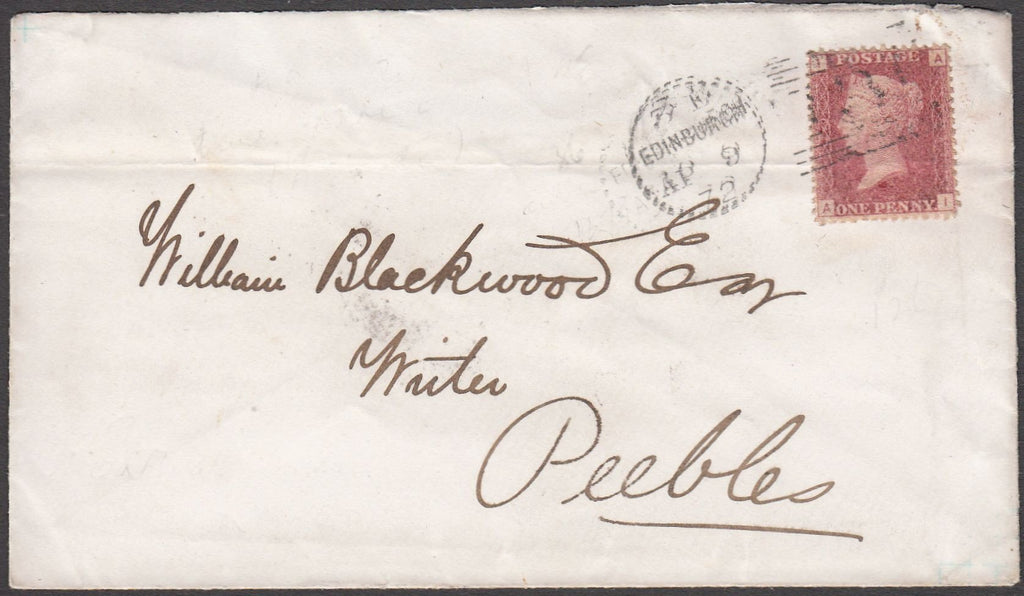 POSTAGE
A
EDINBURGH
AP 9
72
A ONE PENNY I
William Blackwood Esqr
Writer
Peebles